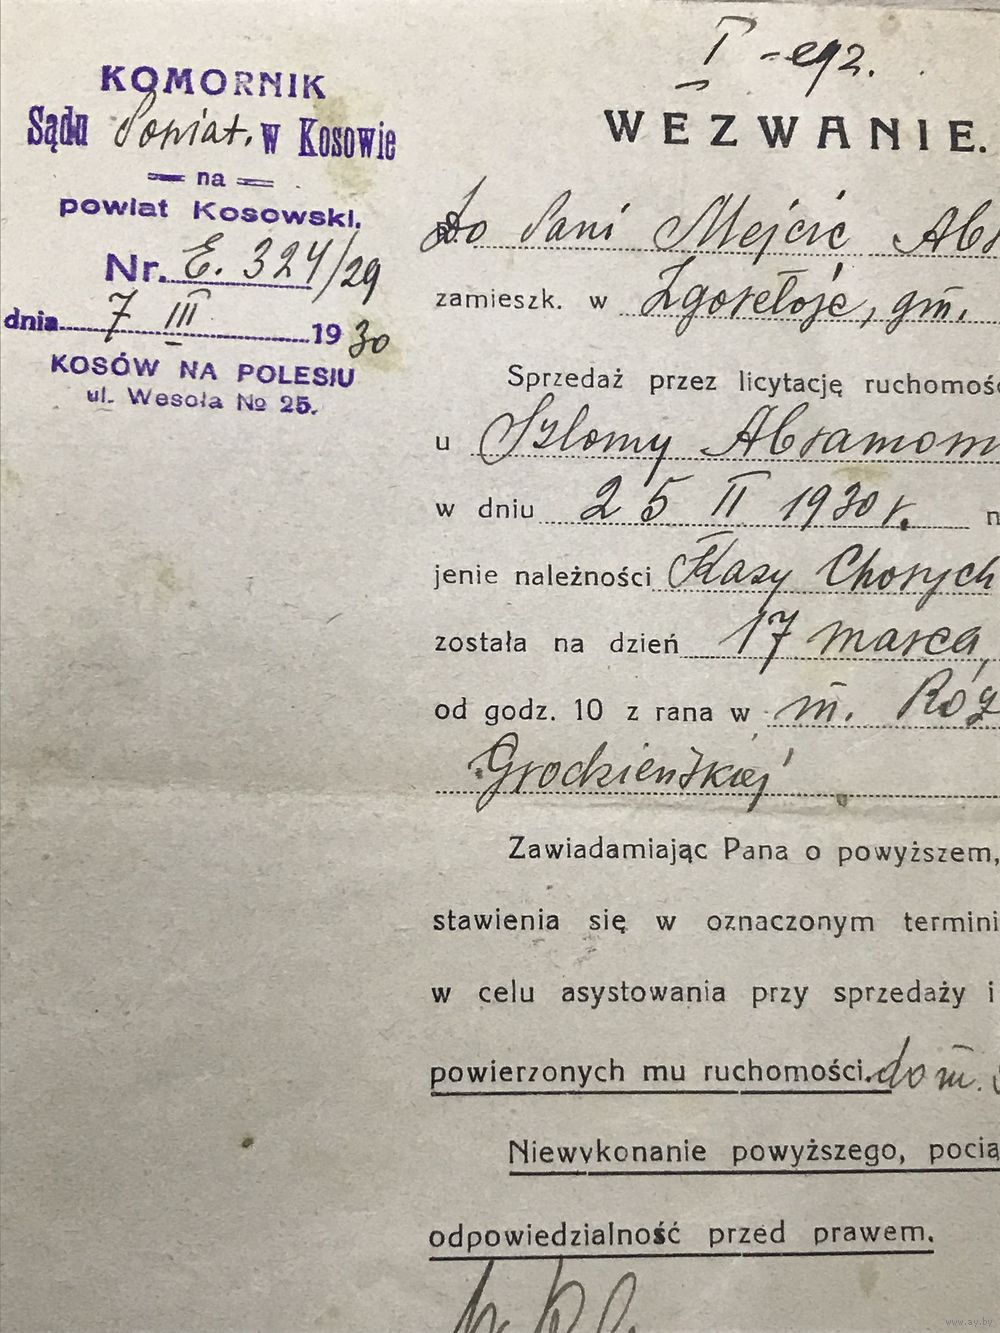 KOMORNIK
Sądu Powiat. w Kosowie
na
powiat Kosowski.
Nr. E. 324/29
dnia 7 III 1930
KOSÓW NA POLESIU
ul. Wesoła № 25.
I - egz.
WEZWANIE.
Do Pani Mejcic Abr
zamieszk. w Zgorełoje, gm.
Sprzedaż przez licytację ruchomoś
u Szlomy Abramow
w dniu 25 II 1930 r. n
jenie należności Kasy Chorych
została na dzień 17 marca
od godz. 10 z rana w m. Róż
Grodzieńskiej
Zawiadamiając Pana o powyższem,
stawienia się w oznaczonym termini
w celu asystowania przy sprzedaży i
powierzonych mu ruchomości. do m.
Niewykonanie powyższego, pocią
odpowiedzialność przed prawem.
www.ay.by